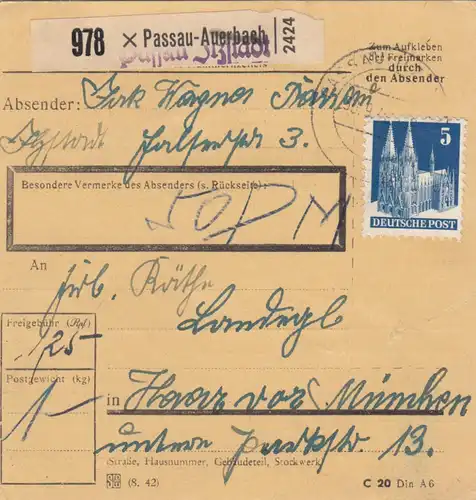 978 × Passau-Auerbach 2424
Passau Ilzstadt
Zum Aufkleben
der Freimarken
durch
den Absender
Absender:
Ilzstadt 3.
5
DEUTSCHE POST
Besondere Vermerke des Absenders (s. Rückseite):
An
Frl. Käthe
Landegl
Freigebühr (Rpf)
125-
Postgewicht (kg)
1-
in Haar vor München
untere Parkstr. 13.
(Straße, Hausnummer, Gebäudeteil, Stockwerk)
(8. 42)
C 20 Din A6